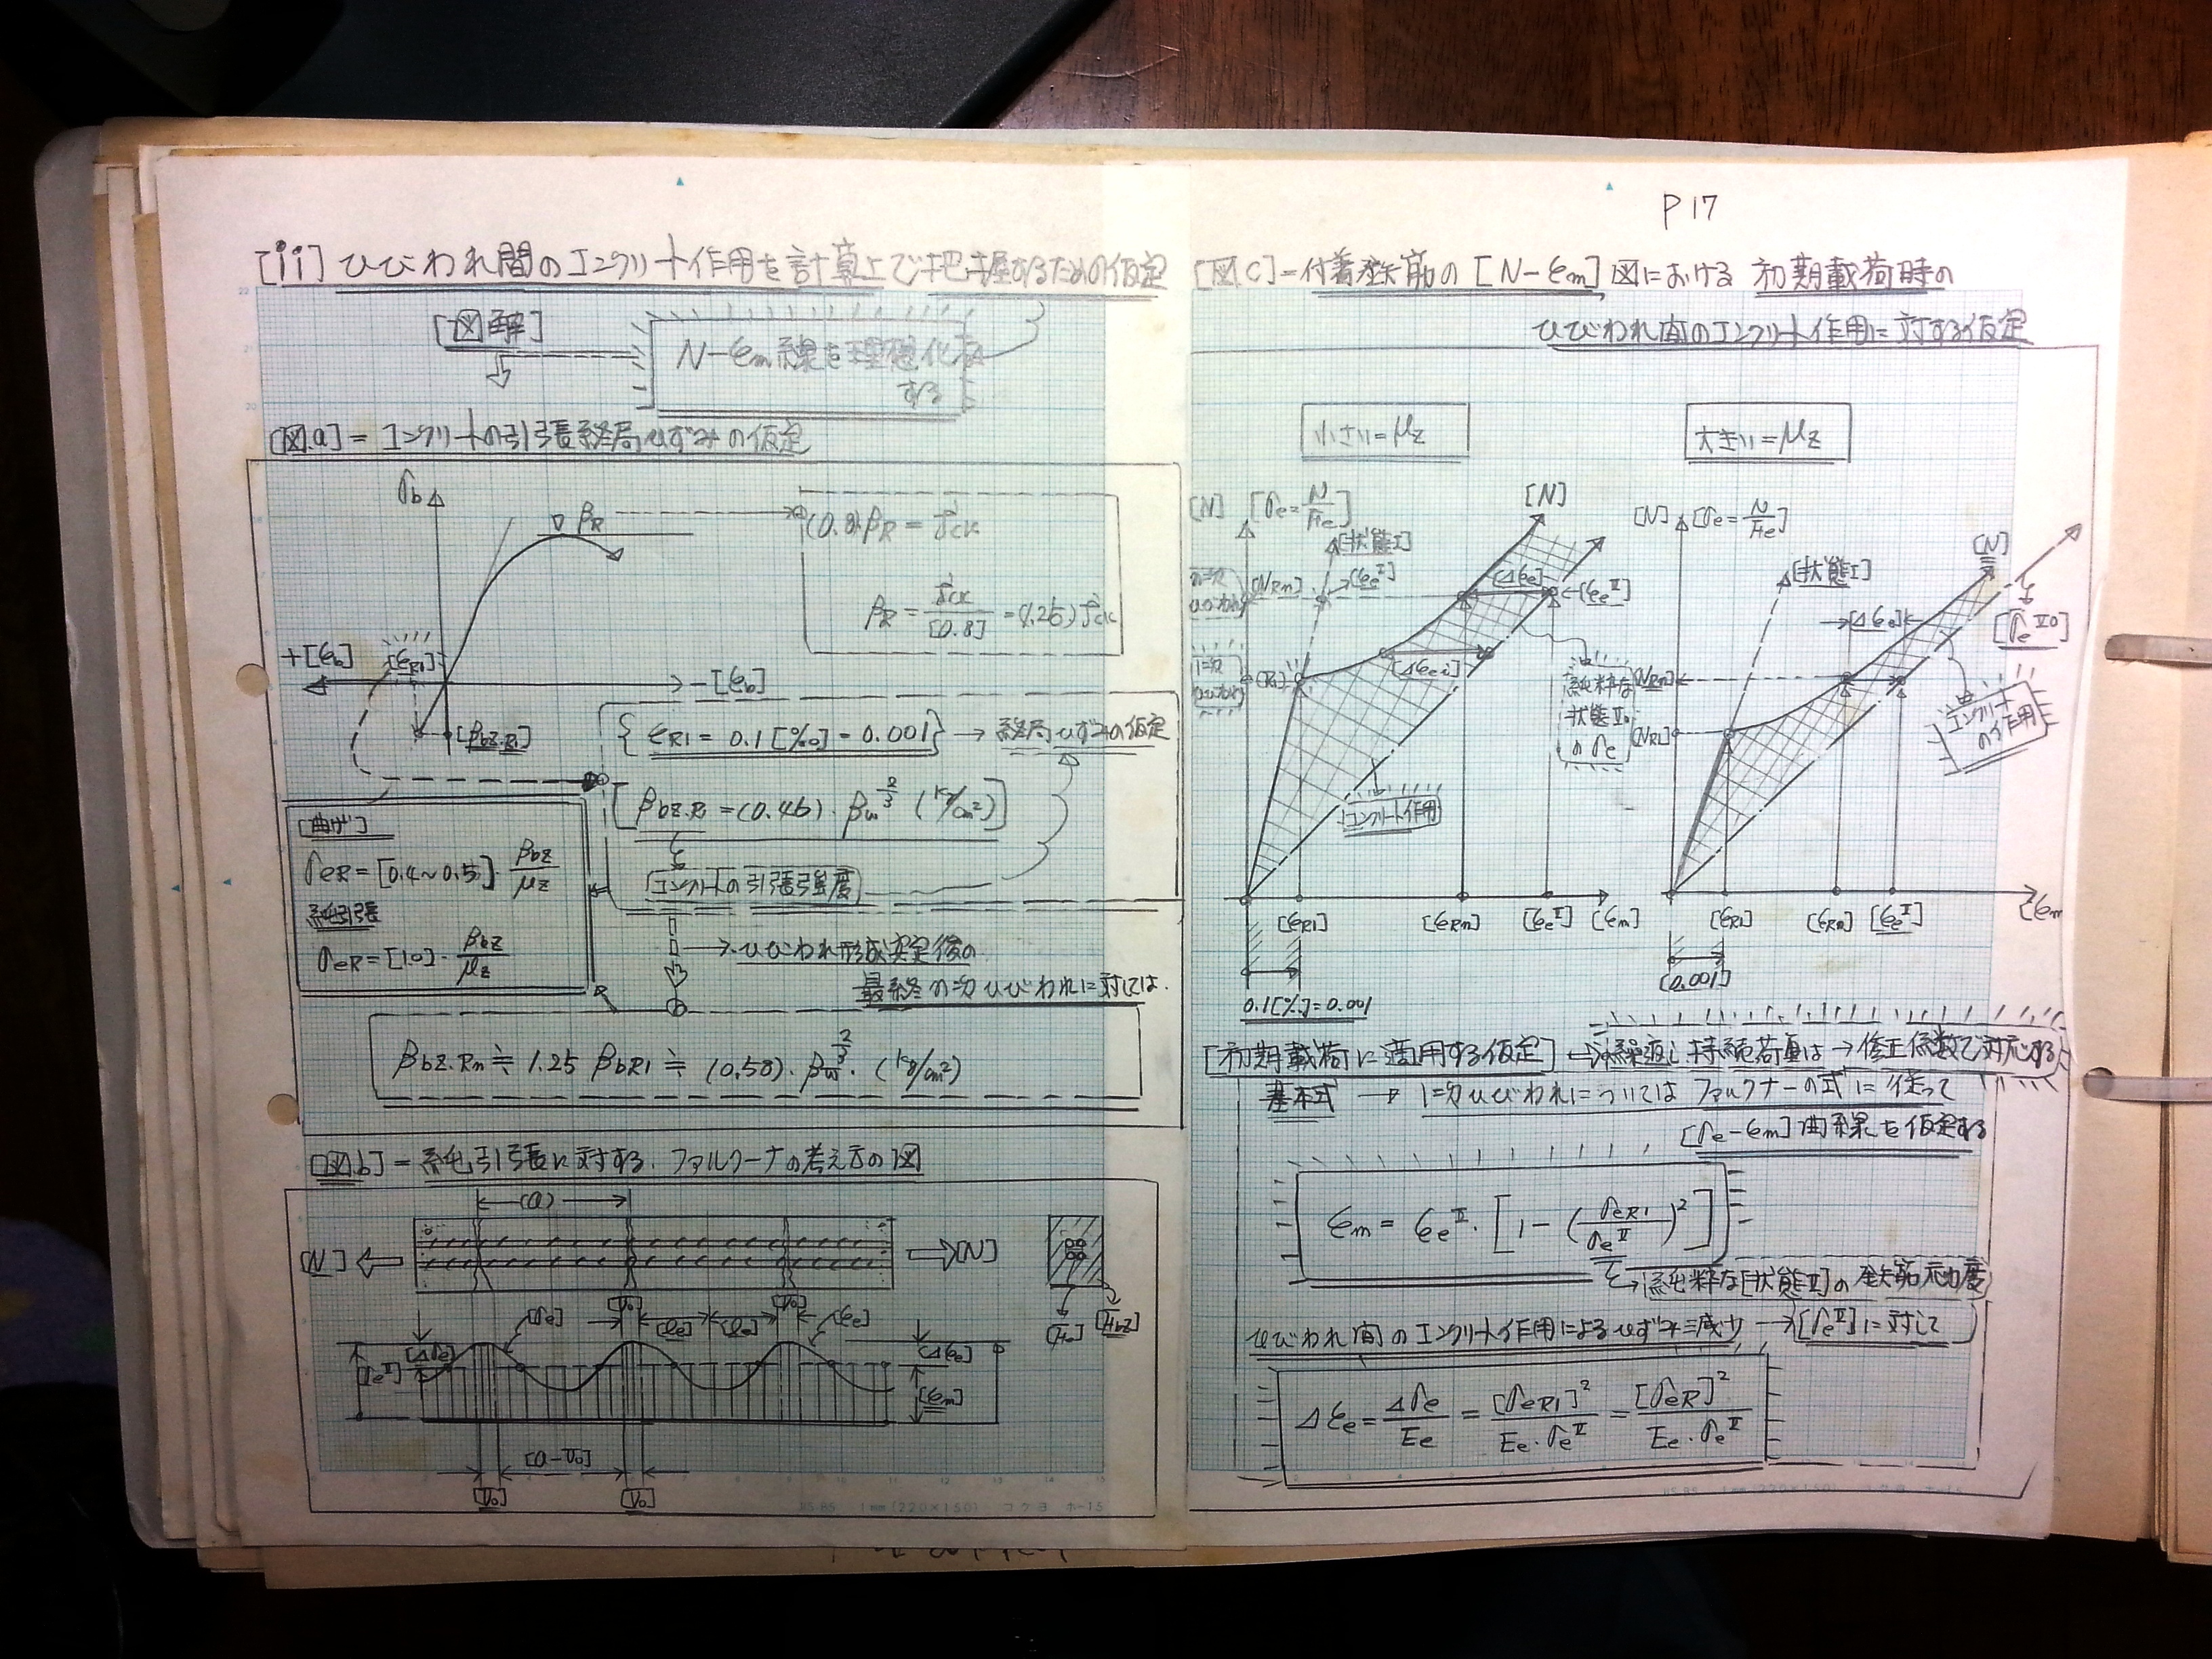 P 17
[ii] ひびわれ間のコンクリート作用を計算上で把握するための仮定
[図解]
N-εm線を理想化する
[図.a] = コンクリートの引張終局ひずみの仮定
σb
βR
(0.8)βR = σck
βR = σck/[0.8] = (1.25)σck
+[εb]
[εR1]
-[εb]
[βbz.R1]
{εR1 = 0.1[‰] = 0.001} → 終局ひずみの仮定
[βbz.R1 = (0.46)・βw^2/3 (kg/cm²)]
コンクリートの引張強度
[曲げ]
σeR = [0.4~0.5]・βbz/μz
純引張
σeR = [1.0]・βbz/μz
→ ひびわれ形成安定後の
最終のn次ひびわれに対しては.
βbz.Rn ≒ 1.25 βbR1 ≒ (0.58)・βw^2/3・(kg/cm²)
[図.b] = 純引張に対する.ファルクーナの考え方の図
(a)
[N]
[N]
[V0]
[V0]
[σe]
[le]
[le]
[εe]
[Fe]
[Fbz]
[Δσe]
[σe^II]
[Δεe]
[εm]
[a-V0]
[V0]
[V0]
RS-85 1mm(220×150) コクヨ ホ-15
[図.C] = 付着鉄筋の[N-εm]図における 初期載荷時の
ひびわれ間のコンクリート作用に対する仮定
小さい=μz
大きい=μz
[N]
[σe=N/Fe]
[状態I]
[N]
[NRn]
[εe^I]
[Δεe]
[εe^II]
[Δεei]
純粋な状態IIのσe
コンクリート作用
[εR1]
[εRn]
[εe^II]
[εm]
0.1[‰]=0.001
[N]
[σe=N/Fe]
[状態I]
[N]
[Δεe]
[σe^II0]
[NRn]
[NR1]
コンクリートの作用
[εR1]
[εRn]
[εe^II]
[εm
[0.001]
[初期載荷に適用する仮定] ← 繰返し持続荷重は→修正係数で対応する
基本式 → 1次ひびわれについてはファルクナーの式に従って
[σe-εm]曲線を仮定する
εm = εe^II・[1-(σeR1/σe^II)²]
→純粋な[状態II]の鉄筋応力度
ひびわれ間のコンクリート作用によるひずみ減少 → [σe^II]に対して
Δεe = Δσe/Ee = [σeR1]²/Ee・σe^II = [σeR]²/Ee・σe^II